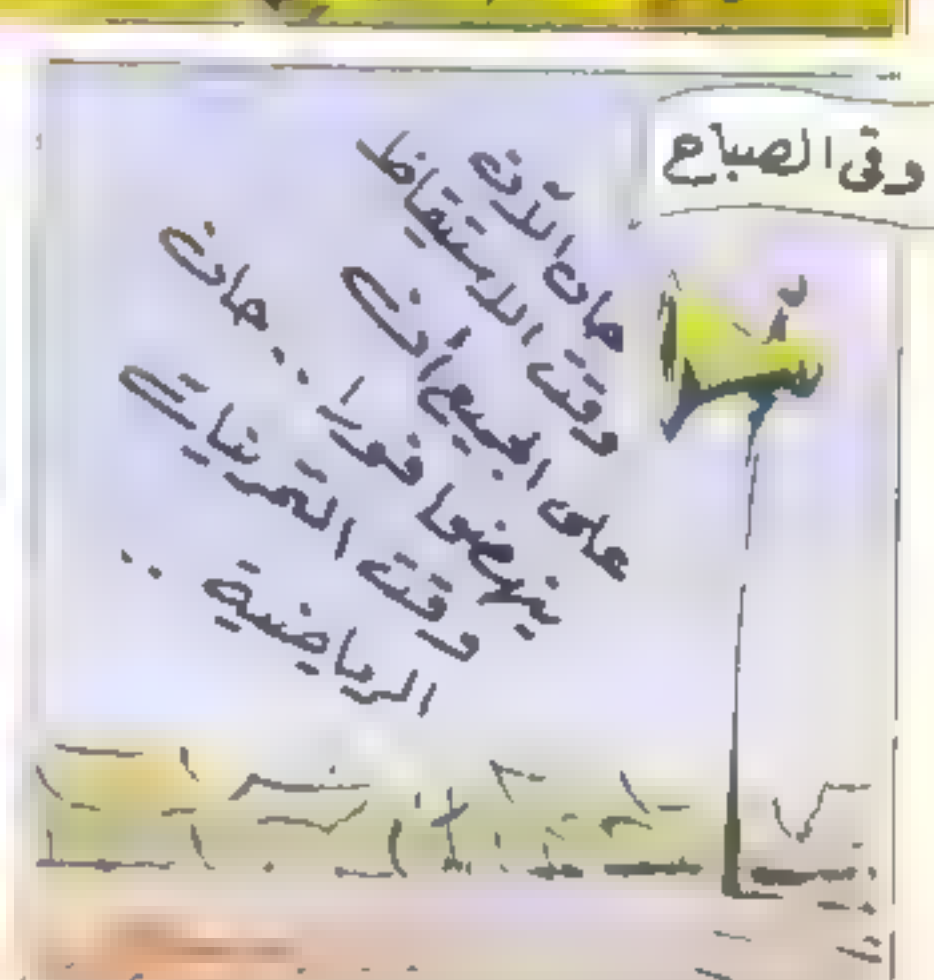 وفى الصباح
حان الآن
وقت الاستيقاظ
على الجميع أن
ينهضوا فوراً .. حان
وقت التمرينات
الرياضية ..